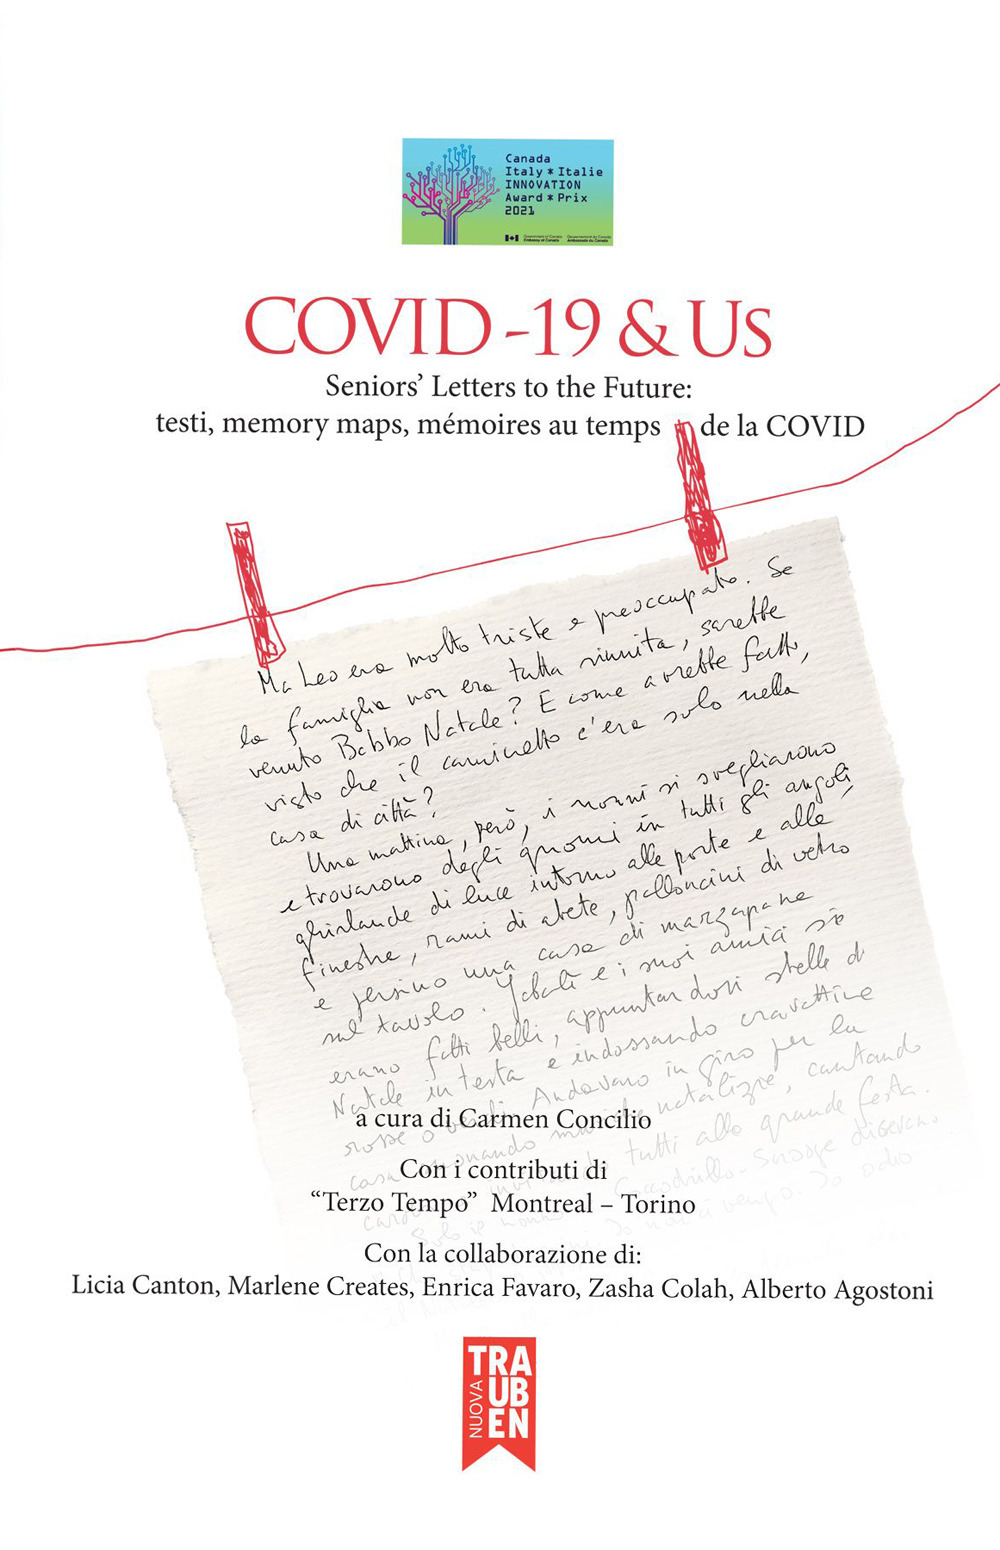 Canada
Italy * Italie
INNOVATION
Award * Prix
2021
Government of Canada
Embassy of Canada
Gouvernement du Canada
Ambassade du Canada
COVID-19 & Us
Seniors’ Letters to the Future:
testi, memory maps, mémoires au temps de la COVID
Ma Leo era molto triste e preoccupato. Se
la famiglia non era tutta riunita, sarebbe
venuto Babbo Natale? E come avrebbe fatto,
visto che il caminetto c'era solo nella
casa di città?
Una mattina, però, i nonni si svegliarono
e trovarono degli gnomi in tutti gli angoli,
ghirlande di luce intorno alle porte e alle
finestre, rami di abete, palloncini di vetro
e persino una casa di marzapane
sul tavolo. e i suoi amici si
erano fatti belli, appuntandosi stelle di
Natale in testa e indossando cravattine
rosse o verdi. Andavano in giro per la
casa natalizie, cantando
tutti alla grande festa.
a cura di Carmen Concilio
Con i contributi di
“Terzo Tempo” Montreal – Torino
Con la collaborazione di:
Licia Canton, Marlene Creates, Enrica Favaro, Zasha Colah, Alberto Agostoni
NUOVA
TRA
UB
EN